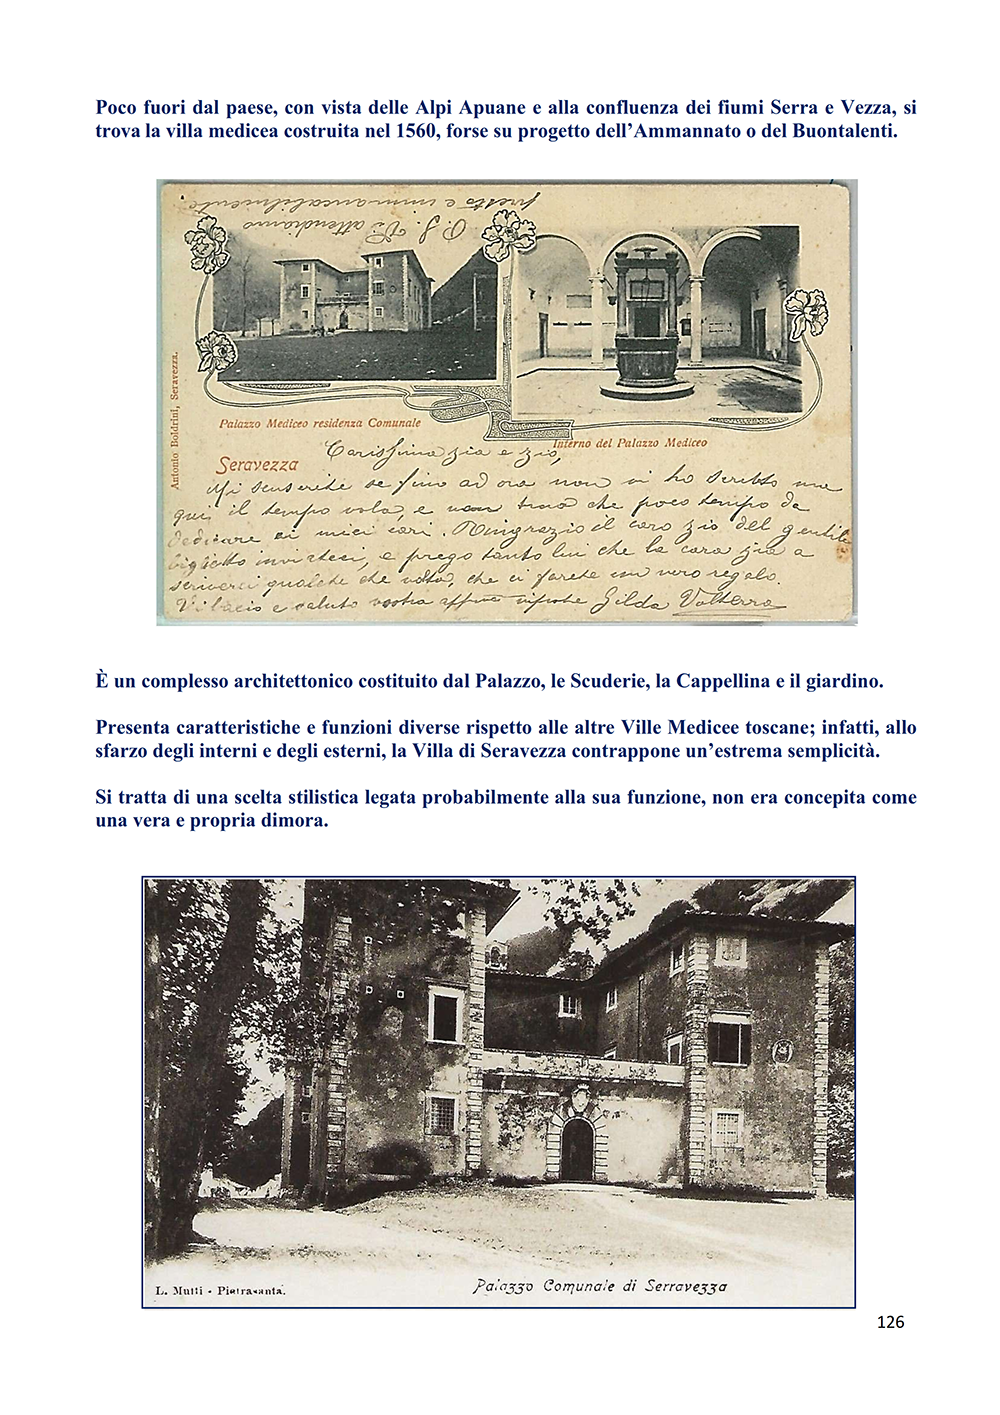 Poco fuori dal paese, con vista delle Alpi Apuane e alla confluenza dei fiumi Serra e Vezza, si
trova la villa medicea costruita nel 1560, forse su progetto dell’Ammannato o del Buontalenti.
presto e immancabilmente
P. S. Vi attendiamo
Antonio Boldrini, Seravezza.
Palazzo Mediceo residenza Comunale
Interno del Palazzo Mediceo
Seravezza
Carissima zia e zio,
Mi scuserete se fino ad ora non vi ho scritto ma
qui il tempo vola, e non trovo che poco tempo da
dedicare ai miei cari. Ringrazio il caro zio del gentile
biglietto inviatoci, e prego tanto lui che la cara zia a
scriverci qualche che volta, che ci farete un vero regalo.
Vi bacio e saluto vostra nipote Gilda Volterra
È un complesso architettonico costituito dal Palazzo, le Scuderie, la Cappellina e il giardino.
Presenta caratteristiche e funzioni diverse rispetto alle altre Ville Medicee toscane; infatti, allo
sfarzo degli interni e degli esterni, la Villa di Seravezza contrappone un’estrema semplicità.
Si tratta di una scelta stilistica legata probabilmente alla sua funzione, non era concepita come
una vera e propria dimora.
L. Mutti - Pietrasanta.
Palazzo Comunale di Serravezza
126